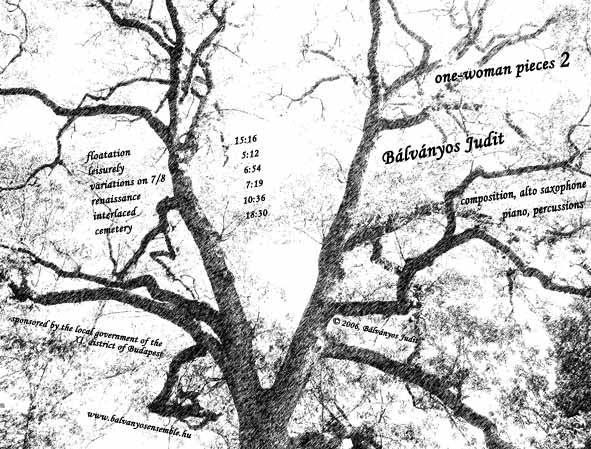 one-woman pieces 2
Bálványos Judit
composition, alto saxophone
piano, percussions
floatation 15:16
leisurely 5:12
variations on 7/8 6:54
renaissance 7:19
interlaced 10:36
cemetery 18:30
© 2006, Bálványos Judit
sponsored by the local government of the
XI. district of Budapest
www.balvanyosensemble.hu